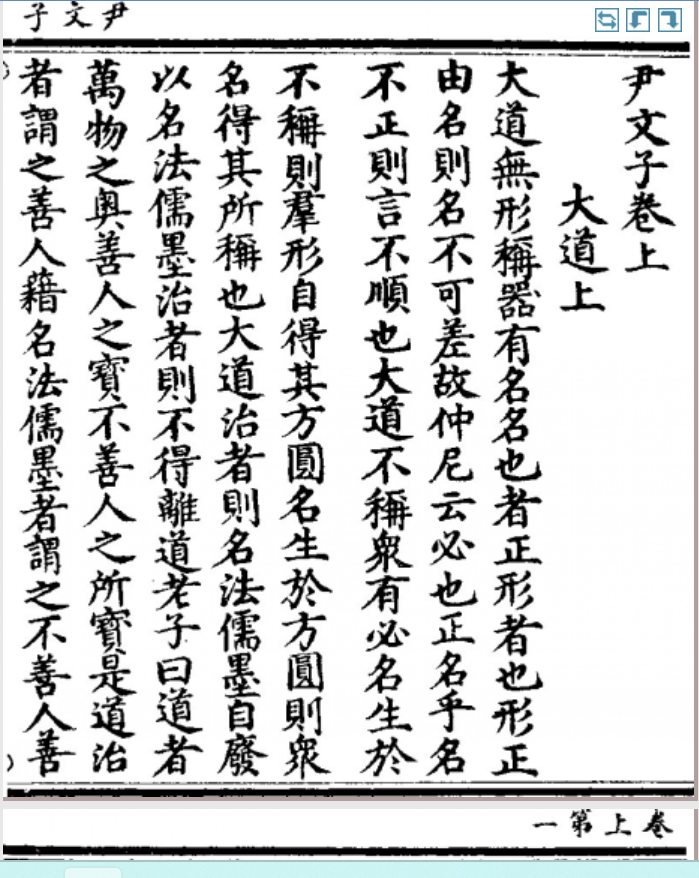 尹文子
尹文子卷上
大道上
大道無形稱器有名名也者正形者也形正
由名則名不可差故仲尼云必也正名乎名
不正則言不順也大道不稱衆有必名生於
不稱則羣形自得其方圓名生於方圓則衆
名得其所稱也大道治者則名法儒墨自廢
以名法儒墨治者則不得離道老子曰道者
萬物之奥善人之寳不善人之所寳是道治
者謂之善人藉名法儒墨者謂之不善人善
卷上第一